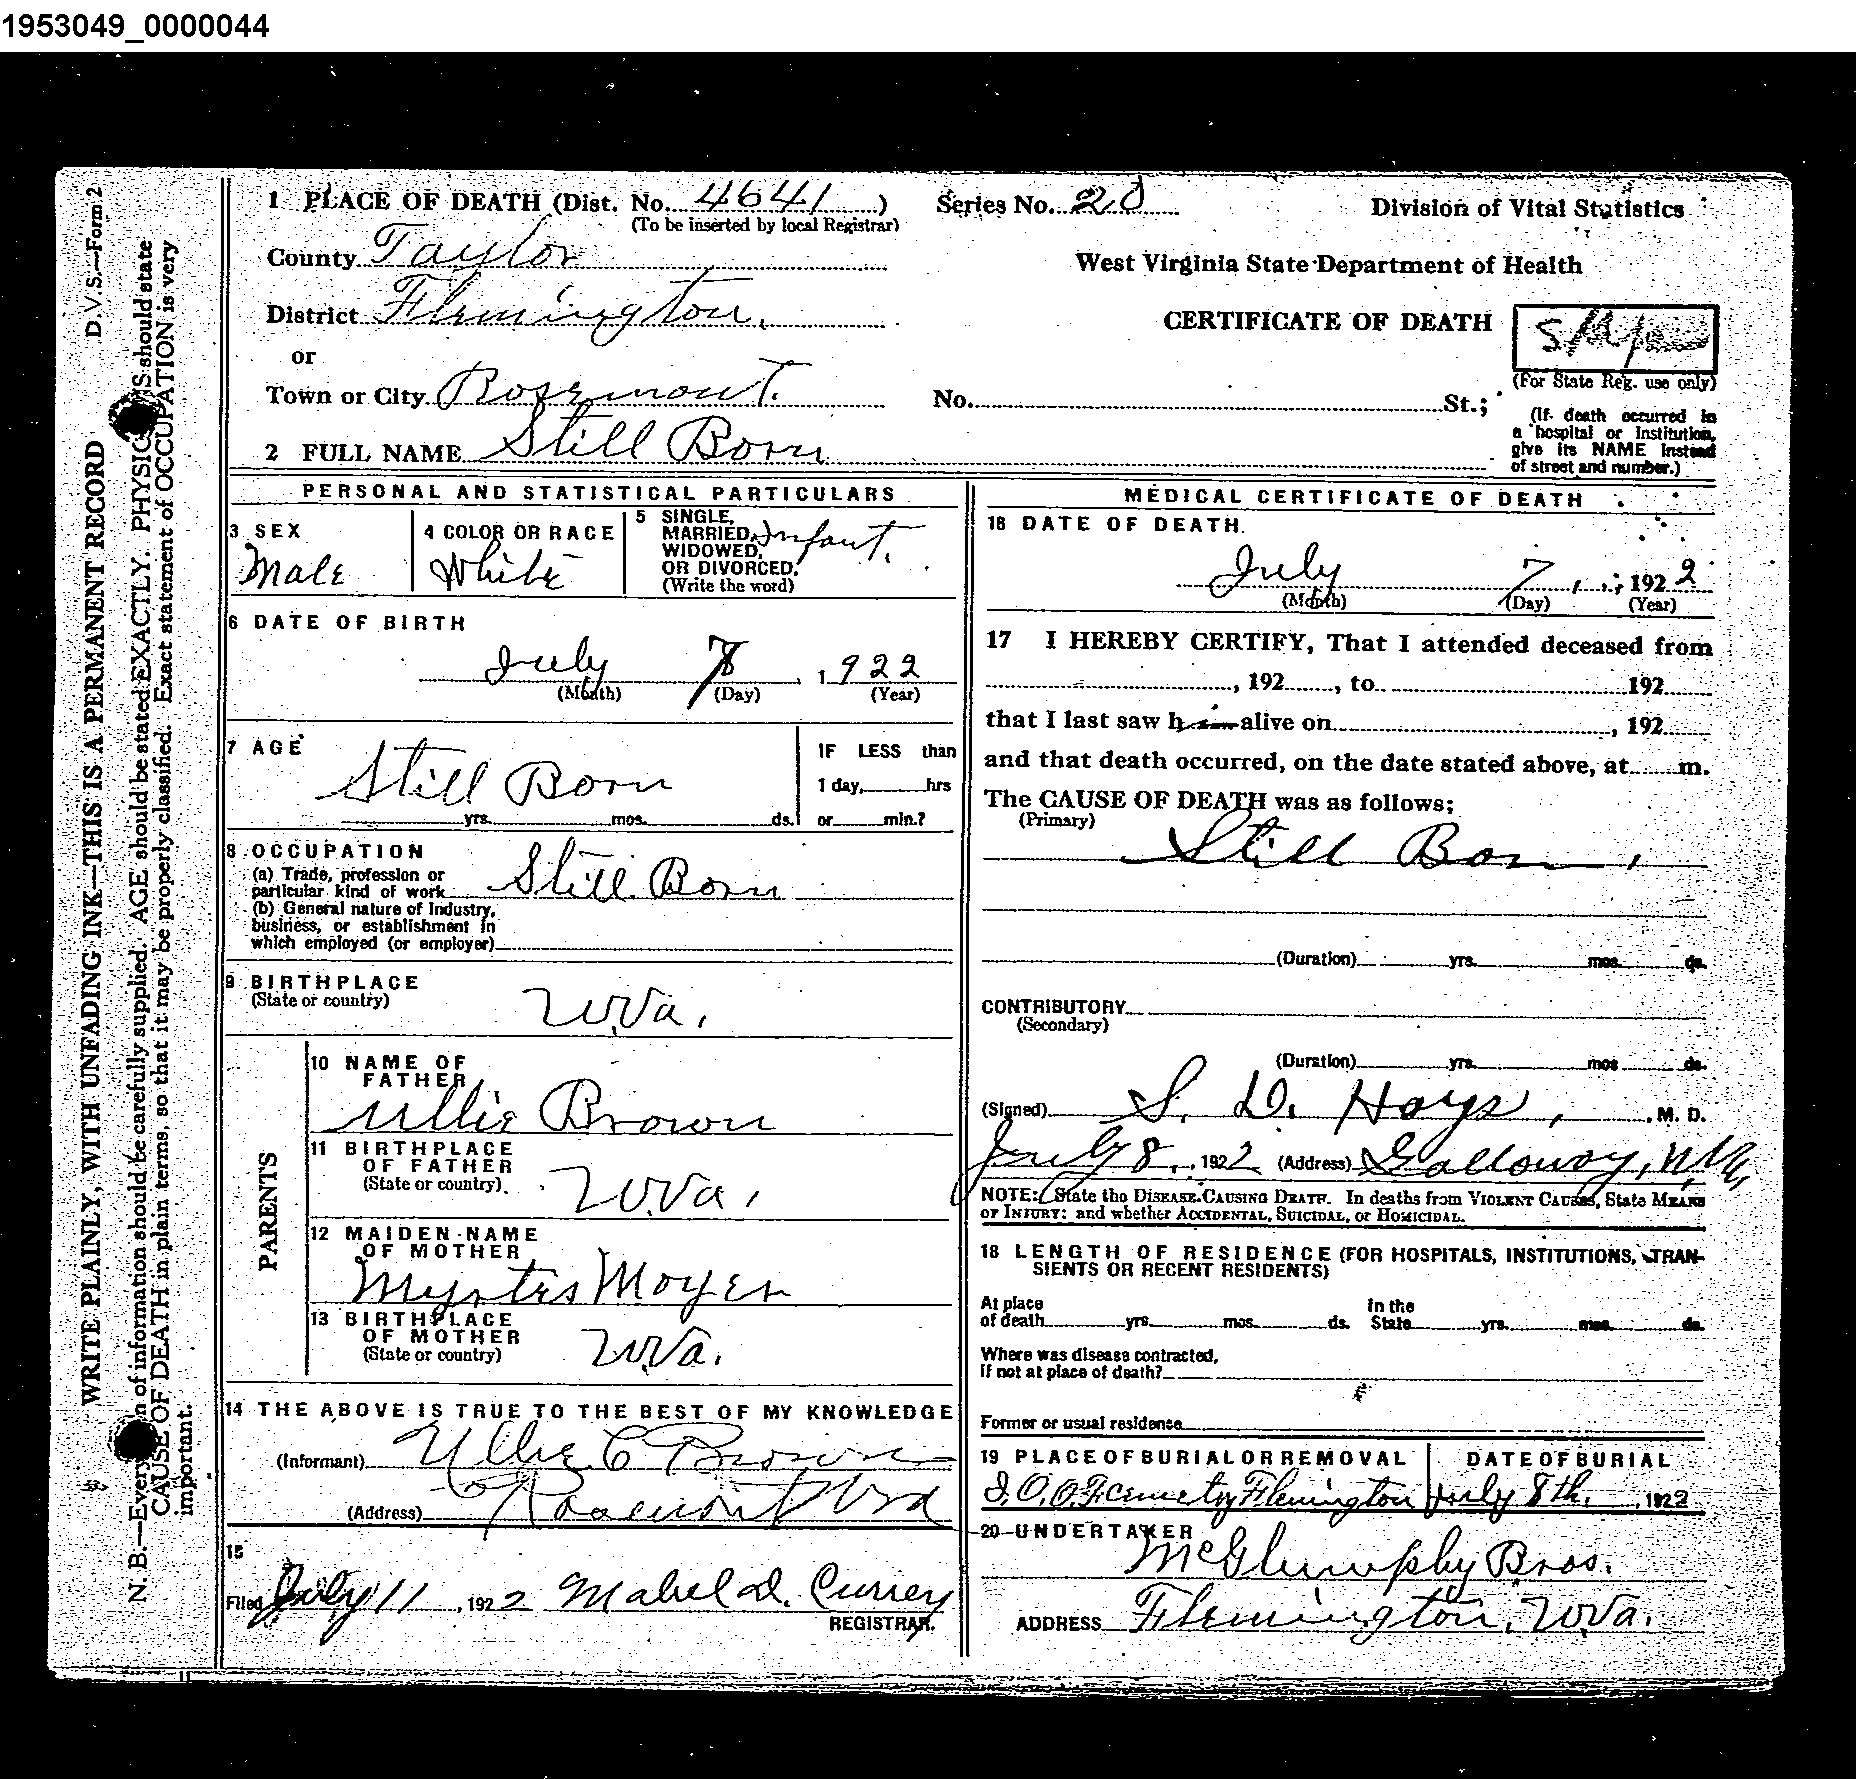 1953049_0000044
D.V.S.—Form 2
WRITE PLAINLY, WITH UNFADING INK—THIS IS A PERMANENT RECORD
N. B.—Every of information should be carefully supplied. AGE should be stated EXACTLY. PHYSIC NS should state
CAUSE OF DEATH in plain terms, so that it may be properly classified. Exact statement of OCCUPATION is very
important.
1 PLACE OF DEATH (Dist. No. 4641 ) Series No. 20 Division of Vital Statistics
(To be inserted by local Registrar)
County Taylor
West Virginia State Department of Health
District Flemington.
CERTIFICATE OF DEATH
or
(For State Reg. use only)
Town or City Rosemont. No. St.;
(If death occurred in
a hospital or institution,
give its NAME instead
of street and number.)
2 FULL NAME Still Born
PERSONAL AND STATISTICAL PARTICULARS
3 SEX
Male
4 COLOR OR RACE
White
5 SINGLE,
MARRIED,
WIDOWED,
OR DIVORCED.
(Write the word)
Infant.
6 DATE OF BIRTH
July 7 , 1922
(Month) (Day) (Year)
7 AGE
Still Born
yrs. mos. ds.
IF LESS than
1 day, hrs
or min.?
8 OCCUPATION
(a) Trade, profession or
particular kind of work Still Born
(b) General nature of Industry,
business, or establishment in
which employed (or employer)
9 BIRTHPLACE
(State or country)
W.Va.
PARENTS
10 NAME OF
FATHER
Ullie Brown
11 BIRTHPLACE
OF FATHER
(State or country)
W.Va.
12 MAIDEN NAME
OF MOTHER
Myrtes Moyer
13 BIRTHPLACE
OF MOTHER
(State or country)
W.Va.
14 THE ABOVE IS TRUE TO THE BEST OF MY KNOWLEDGE
(Informant) Ullie C Brown
(Address) Rosemont W Va
15
Filed July 11 , 1922 Mabel D. Currey
REGISTRAR.
MEDICAL CERTIFICATE OF DEATH
16 DATE OF DEATH.
July 7 , 1922
(Month) (Day) (Year)
17 I HEREBY CERTIFY, That I attended deceased from
, 192 , to 192
that I last saw h im alive on , 192
and that death occurred, on the date stated above, at m.
The CAUSE OF DEATH was as follows:
(Primary)
Still Born,
(Duration) yrs. mos. ds.
CONTRIBUTORY
(Secondary)
(Duration) yrs. mos ds.
(Signed) S. D. Hays, , M. D.
July 8, , 1922 (Address) Galloway, W.Va,
NOTE: State the DISEASE CAUSING DEATH. In deaths from VIOLENT CAUSES, State MEANS
OF INJURY: and whether ACCIDENTAL, SUICIDAL, or HOMICIDAL.
18 LENGTH OF RESIDENCE (FOR HOSPITALS, INSTITUTIONS, TRAN-
SIENTS OR RECENT RESIDENTS)
At place
of death yrs. mos. ds.
In the
State yrs. mos. ds.
Where was disease contracted,
if not at place of death?
Former or usual residence
19 PLACE OF BURIAL OR REMOVAL
I.O.O.F. cemetry Flemington
DATE OF BURIAL
July 8th. , 1922
20 UNDERTAKER
McGlumphy Bros.
ADDRESS Flemington, W.Va.